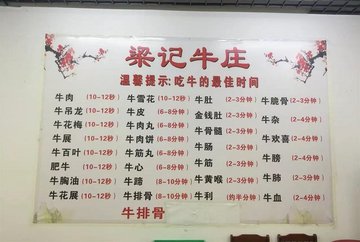 梁记牛庄
温馨提示:吃牛的最佳时间
牛肉(10-12秒) 牛雪花(10-12秒) 牛肚(2-3分钟) 牛脆骨(2-3分钟)
牛吊龙(10-12秒) 牛皮(6-8分钟) 金钱肚(2-3分钟) 牛杂(2-4分钟)
牛花梅(10-12秒) 牛肉丸(6-8分钟) 牛骨髓(2-3分钟) 牛欢喜(2-4分钟)
牛展(10-12秒) 牛肉饼(6-8分钟) 牛肠(2-3分钟) 牛膀(2-4分钟)
牛百叶(10-12秒) 牛筋丸(6-8分钟) 牛筋(2-3分钟) 牛肺(2-4分钟)
肥牛(10-12秒) 牛心(6-8分钟) 牛黄喉(2-3分钟) 牛血(2-4分钟)
牛胸油(10-12秒) 牛蹄(8-10分钟) 牛利(约半分钟)
牛花展(10-12秒) 牛排骨(8-10分钟)
牛排骨